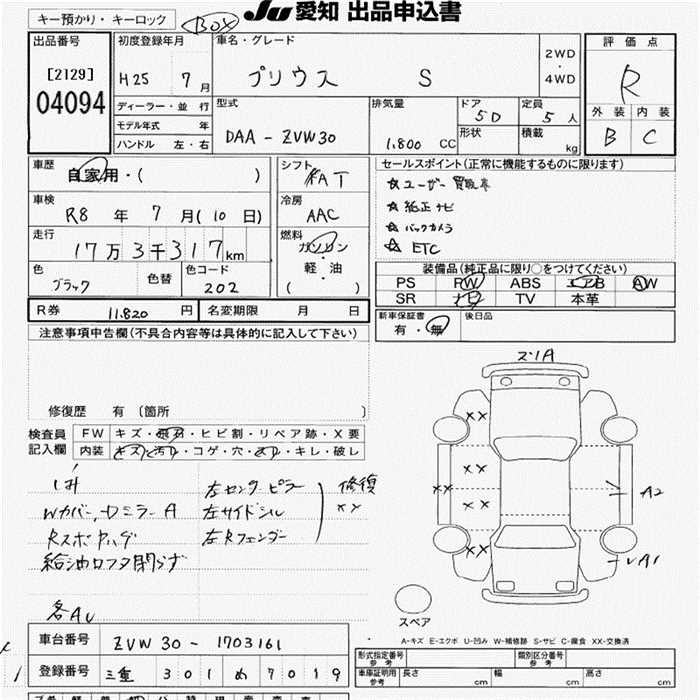 キー預かり・キーロック BOX JU 愛知 出品申込書
出品番号 [2129] 04094
初度登録年月 H25 7月
車名・グレード プリウス S
2WD・4WD
評価点 R
外装 内装
B C
ディーラー・並行
モデル年式 年
ハンドル 左・右
型式 DAA-ZVW30
排気量 1,800 CC
ドア 5D
形状
定員 5人
積載 kg
車歴 自家用・( )
車検 R8年 7月(10日)
走行 17万3千317km
色 ブラック 色替 色コード 202
シフト FAT
冷房 AAC
燃料 ガソリン・軽・油 ( )
セールスポイント(正常に機能するものに限ります)
☆ユーザー買取車
☆純正ナビ
☆バックカメラ
☆ETC
装備品(純正品に限り○をつけてください)
PS PW ABS エアB AW
SR ナビ TV 本革
R券 11,820円 名変期限 月 日
新車保証書 有・無 後日品
注意事項申告欄(不具合内容等は具体的に記入して下さい)
修復歴 有 [箇所 ]
検査員記入欄
FW キズ・飛石・ヒビ割・リペア跡・X要
内装 キズ・汚れ・コゲ・穴・スレ・キレ・破レ
Wカバー,Dミラー A
給油口フタ閉らず
各AU
左センターピラー
左サイドシル
左Rフェンダー
修復 XX
スリA
XX
XX
XX XX
XX
A2
A1
スペア
A-キズ E-エクボ U-凹み W-補修跡 S-サビ C-腐食 XX-交換済
車台番号 ZVW30-1703161
登録番号 三重 301 め 7019
形式指定番号 参考 類別区分番号 参考
車庫証明用 参考 長さ cm 幅 cm 高さ cm